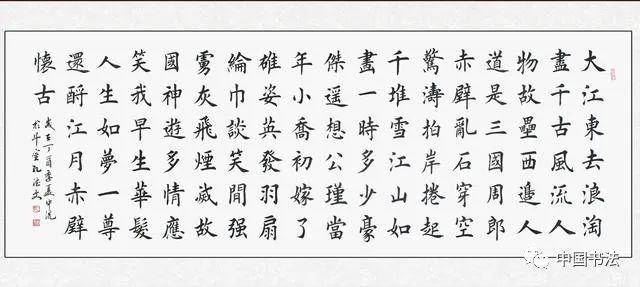 大江東去浪淘
盡千古風流人
物故壘西邊人
道是三國周郎
赤壁亂石穿空
驚濤拍岸捲起
千堆雪江山如
畫一時多少豪
傑遥想公瑾當
年小喬初嫁了
雄姿英發羽扇
綸巾談笑間强
虜灰飛煙滅故
國神遊多情應
笑我早生華髮
人生如夢一尊
還酹江月赤壁
懷古
歲在丁酉季夏中浣
於斗室
中国书法